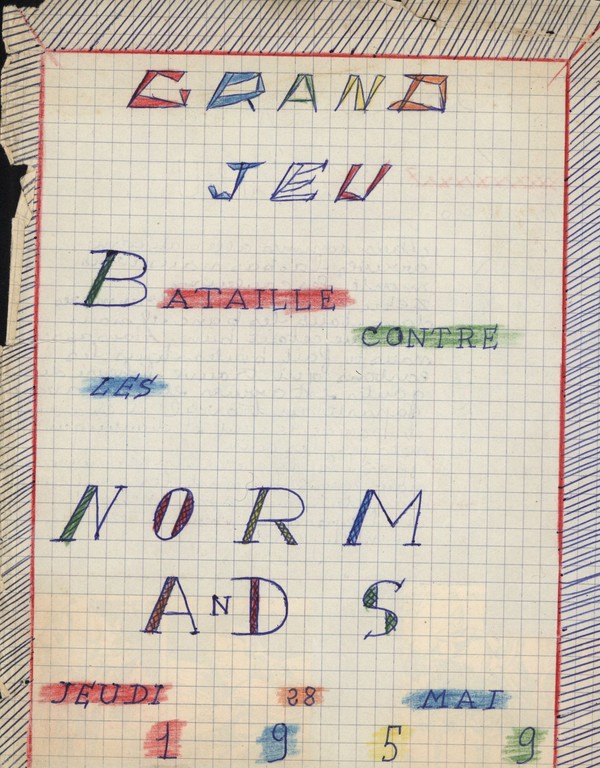 GRAND
JEU
BATAILLE
CONTRE
LES
NORM
ANDS
JEUDI 28 MAI
1959